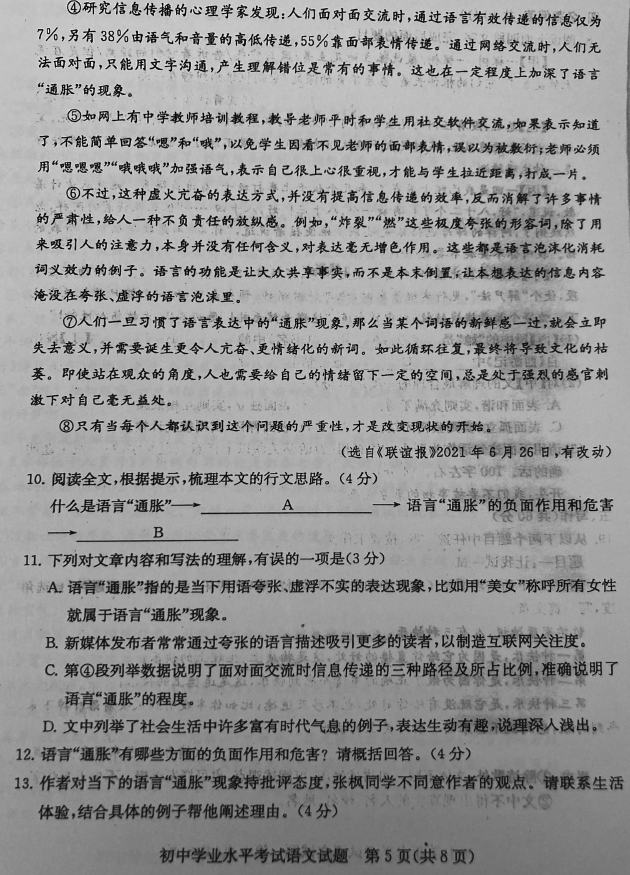 ④研究信息传播的心理学家发现:人们面对面交流时,通过语言有效传递的信息仅为
7%,另有38%由语气和音量的高低传递,55%靠面部表情传递。通过网络交流时,人们无
法面对面,只能用文字沟通,产生理解错位是常有的事情。这也在一定程度上加深了语言
“通胀”的现象。
⑤如网上有中学教师培训教程,教导老师平时和学生用社交软件交流,如果表示知道
了,不能简单回答“嗯”和“哦”,以免学生因看不见老师的面部表情,误以为被敷衍;老师必须
用“嗯嗯嗯”“哦哦哦”加强语气,表示自己很上心很重视,才能与学生拉近距离,打成一片。
⑥不过,这种虚火亢奋的表达方式,并没有提高信息传递的效率,反而消解了许多事情
的严肃性,给人一种不负责任的放纵感。例如,“炸裂”“燃”这些极度夸张的形容词,除了用
来吸引人的注意力,本身并没有任何含义,对表达毫无增色作用。这些都是语言泡沫化消耗
词义效力的例子。语言的功能是让大众共享事实,而不是本末倒置,让本想表达的信息内容
淹没在夸张、虚浮的语言泡沫里。
⑦人们一旦习惯了语言表达中的“通胀”现象,那么当某个词语的新鲜感一过,就会立即
失去意义,并需要诞生更令人亢奋、更情绪化的新词。如此循环往复,最终将导致文化的枯
萎。即使站在观众的角度,人也需要给自己的情绪留下一定的空间,总是处于强烈的感官刺
激下对自己毫无益处。
⑧只有当每个人都认识到这个问题的严重性,才是改变现状的开始。
(选自《联谊报》2021年6月26日,有改动)
10. 阅读全文,根据提示,梳理本文的行文思路。(4分)
什么是语言“通胀”→ A → 语言“通胀”的负面作用和危害
→ B
11. 下列对文章内容和写法的理解,有误的一项是(3分)
A. 语言“通胀”指的是当下用语夸张、虚浮不实的表达现象,比如用“美女”称呼所有女性
就属于语言“通胀”现象。
B. 新媒体发布者常常通过夸张的语言描述吸引更多的读者,以制造互联网关注度。
C. 第④段列举数据说明了面对面交流时信息传递的三种路径及所占比例,准确说明了
语言“通胀”的程度。
D. 文中列举了社会生活中许多富有时代气息的例子,表达生动有趣,说理深入浅出。
12. 语言“通胀”有哪些方面的负面作用和危害?请概括回答。(4分)
13. 作者对当下的语言“通胀”现象持批评态度,张枫同学不同意作者的观点。请联系生活
体验,结合具体的例子帮他阐述理由。(4分)
初中学业水平考试语文试题 第5页(共8页)